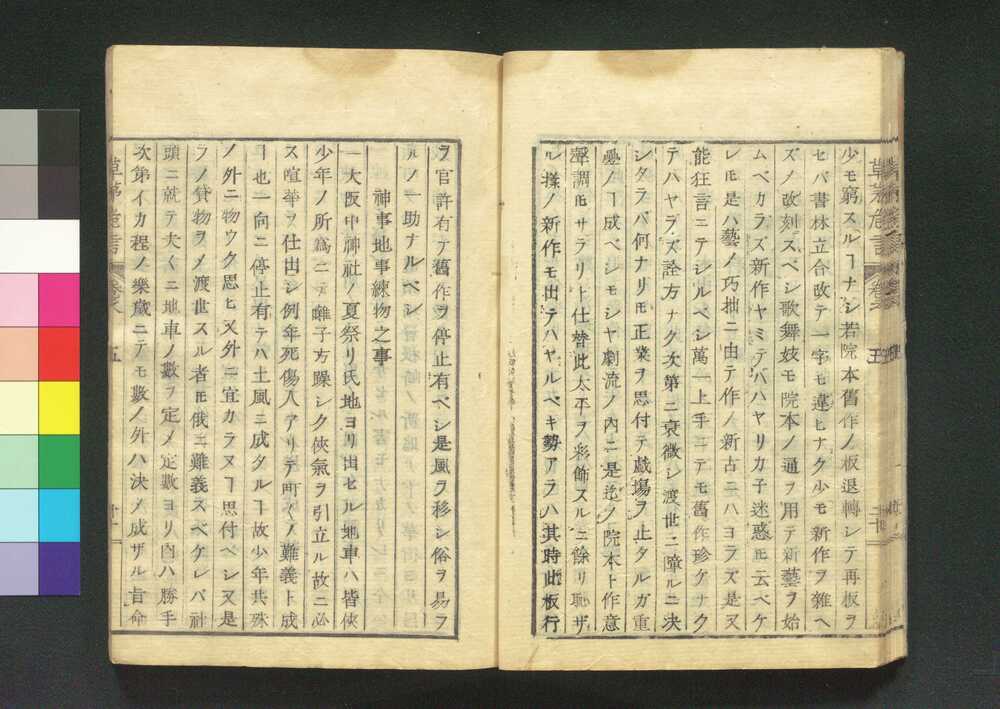 少モ窮スルヿナシ若院本舊作ノ板退轉シテ再板ヲ
セバ書林立合改テ一字モ違ヒナク少モ新作ヲ雜ヘ
ズノ改刻スベシ歌舞妓モ院本ノ通ヲ用テ新藝ヲ始
ムベカラズ新作ヤミテバハヤリカ子迷惑𪜈云ベケ
レ𪜈是ハ藝ノ巧拙ニ由テ作ノ新古ニハヨラズ是又
能狂言ニテシルベシ萬一上手ニテモ舊作珍ケナク
テハヤラズ詮方ナク次第ニ衰微シ渡世ニ障ルニ決
シタラバ何ナリ𪜈正業ヲ思付テ戯塲ヲ止タルガ重
疊ノヿ成ベシモシヤ劇流ノ内ニ是迄ノ院本ト作意
聲調𪜈サラリト仕替此太平ヲ彩飾スルニ餘リ恥ザ
ル様ノ新作モ出テハヤルベキ勢アラハ其時此板行
ヲ官許有テ舊作ヲ停止有ベシ是風ヲ移シ俗ヲ易フ
ルノ一助ナルベシ
神事地事練物之事
一大阪中神社ノ夏祭リ氏地ヨリ出セル地車ハ皆俠
少年ノ所爲ニテ囃子方躁シク俠氣ヲ引立ル故ニ必
ス喧𠵅ヲ仕出シ例年死傷人アリテ町〱ノ難義ト成
ヿ也一向ニ停止有テハ土風ニ成タルヿ故少年共殊
ノ外ニ物ウク思ヒ又外ニ宜カラヌヿ思付ベシ又是
ラノ貸物ヲメ渡世スル者𪜈俄ニ難義スベケレバ社
頭ニ就テ大〱ニ地車ノ數ヲ定メ定數ヨリ内ハ勝手
次第イカ程ノ樂歳ニテモ數ノ外ハ決メ成ザル旨命
草茅危言
五
二十